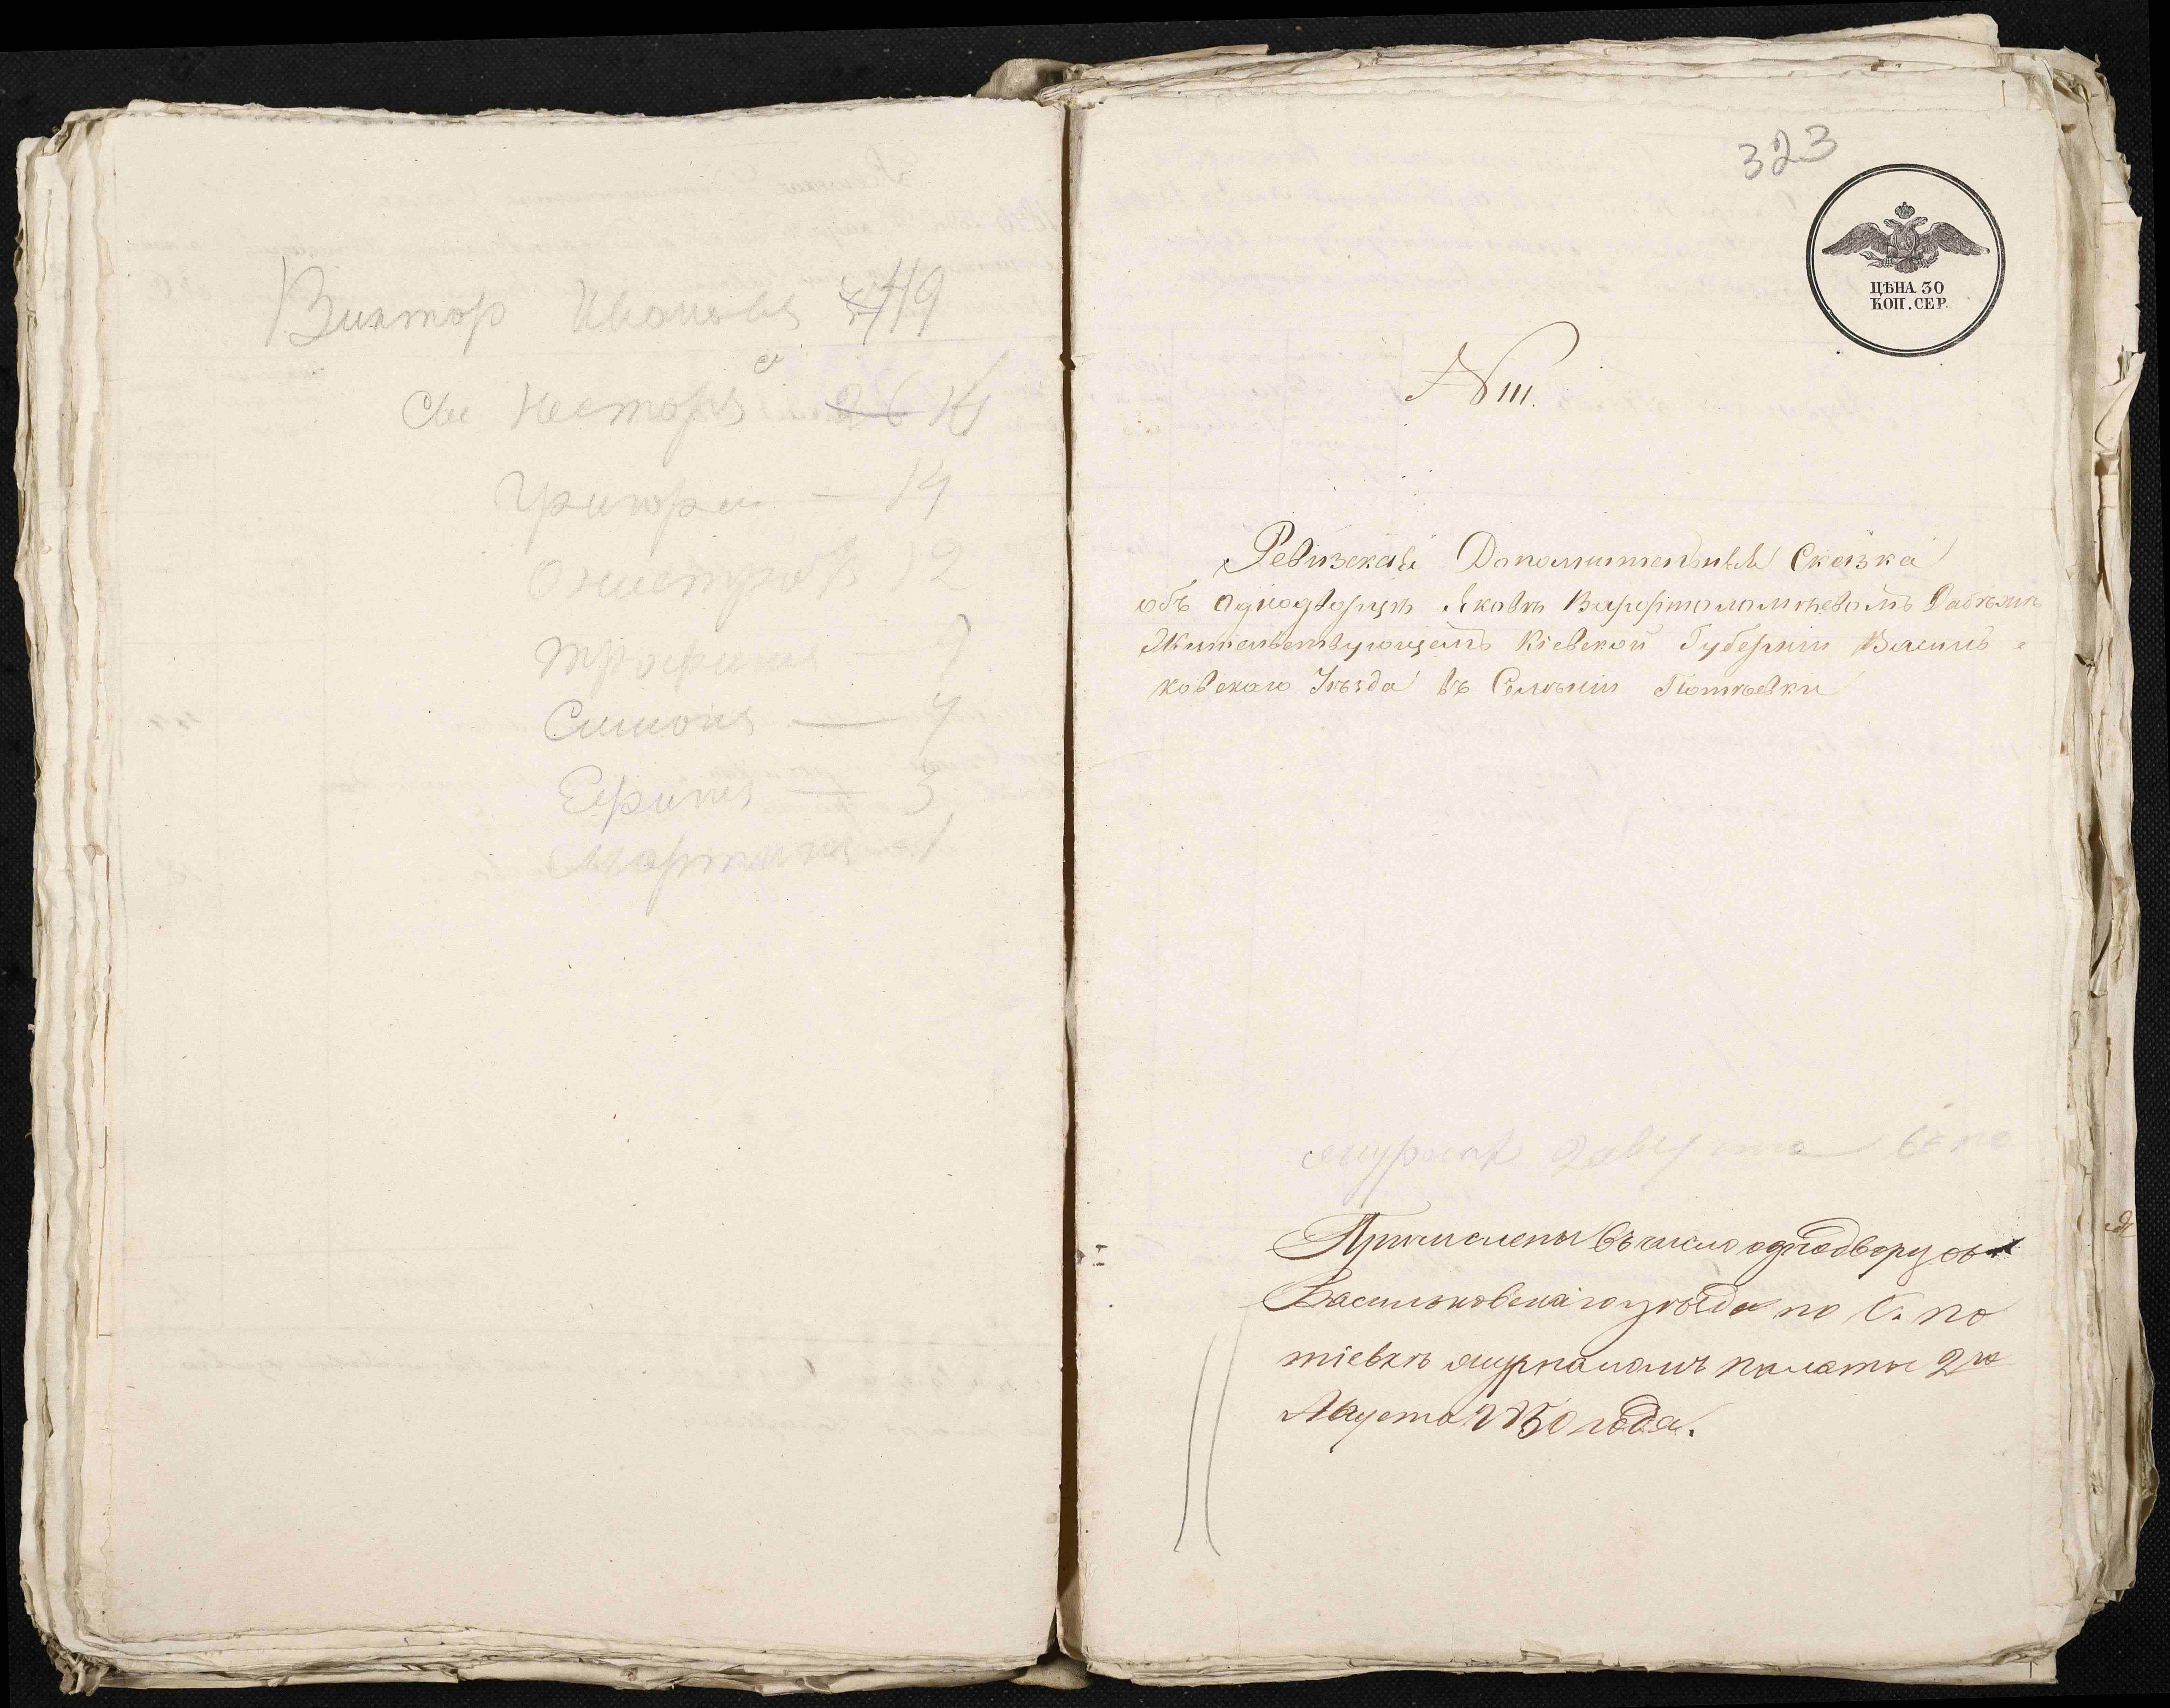 Викторъ Ивановъ 49
Сы Несторъ 26 16
Григорей — 14
12
Трофимъ — 9
Симонъ — 7
Ефимъ — 3
Мартинъ 1
323
ЦѢНА 30
КОП. СЕР.
№ 111.
Ревизская Дополнительная Сказка
объ Однодворцѣ Яковѣ Варфоломѣевомъ
Жительствующемъ Кіевской Губерніи Василь=
ковскаго Уѣзда въ Селеніи Потіевки
журнал 2 августа
Причислены въ число однодворцовъ
Васильковскаго уѣзда по С. По
тіевкѣ журналомъ палаты 2го
Августа 1850 года.